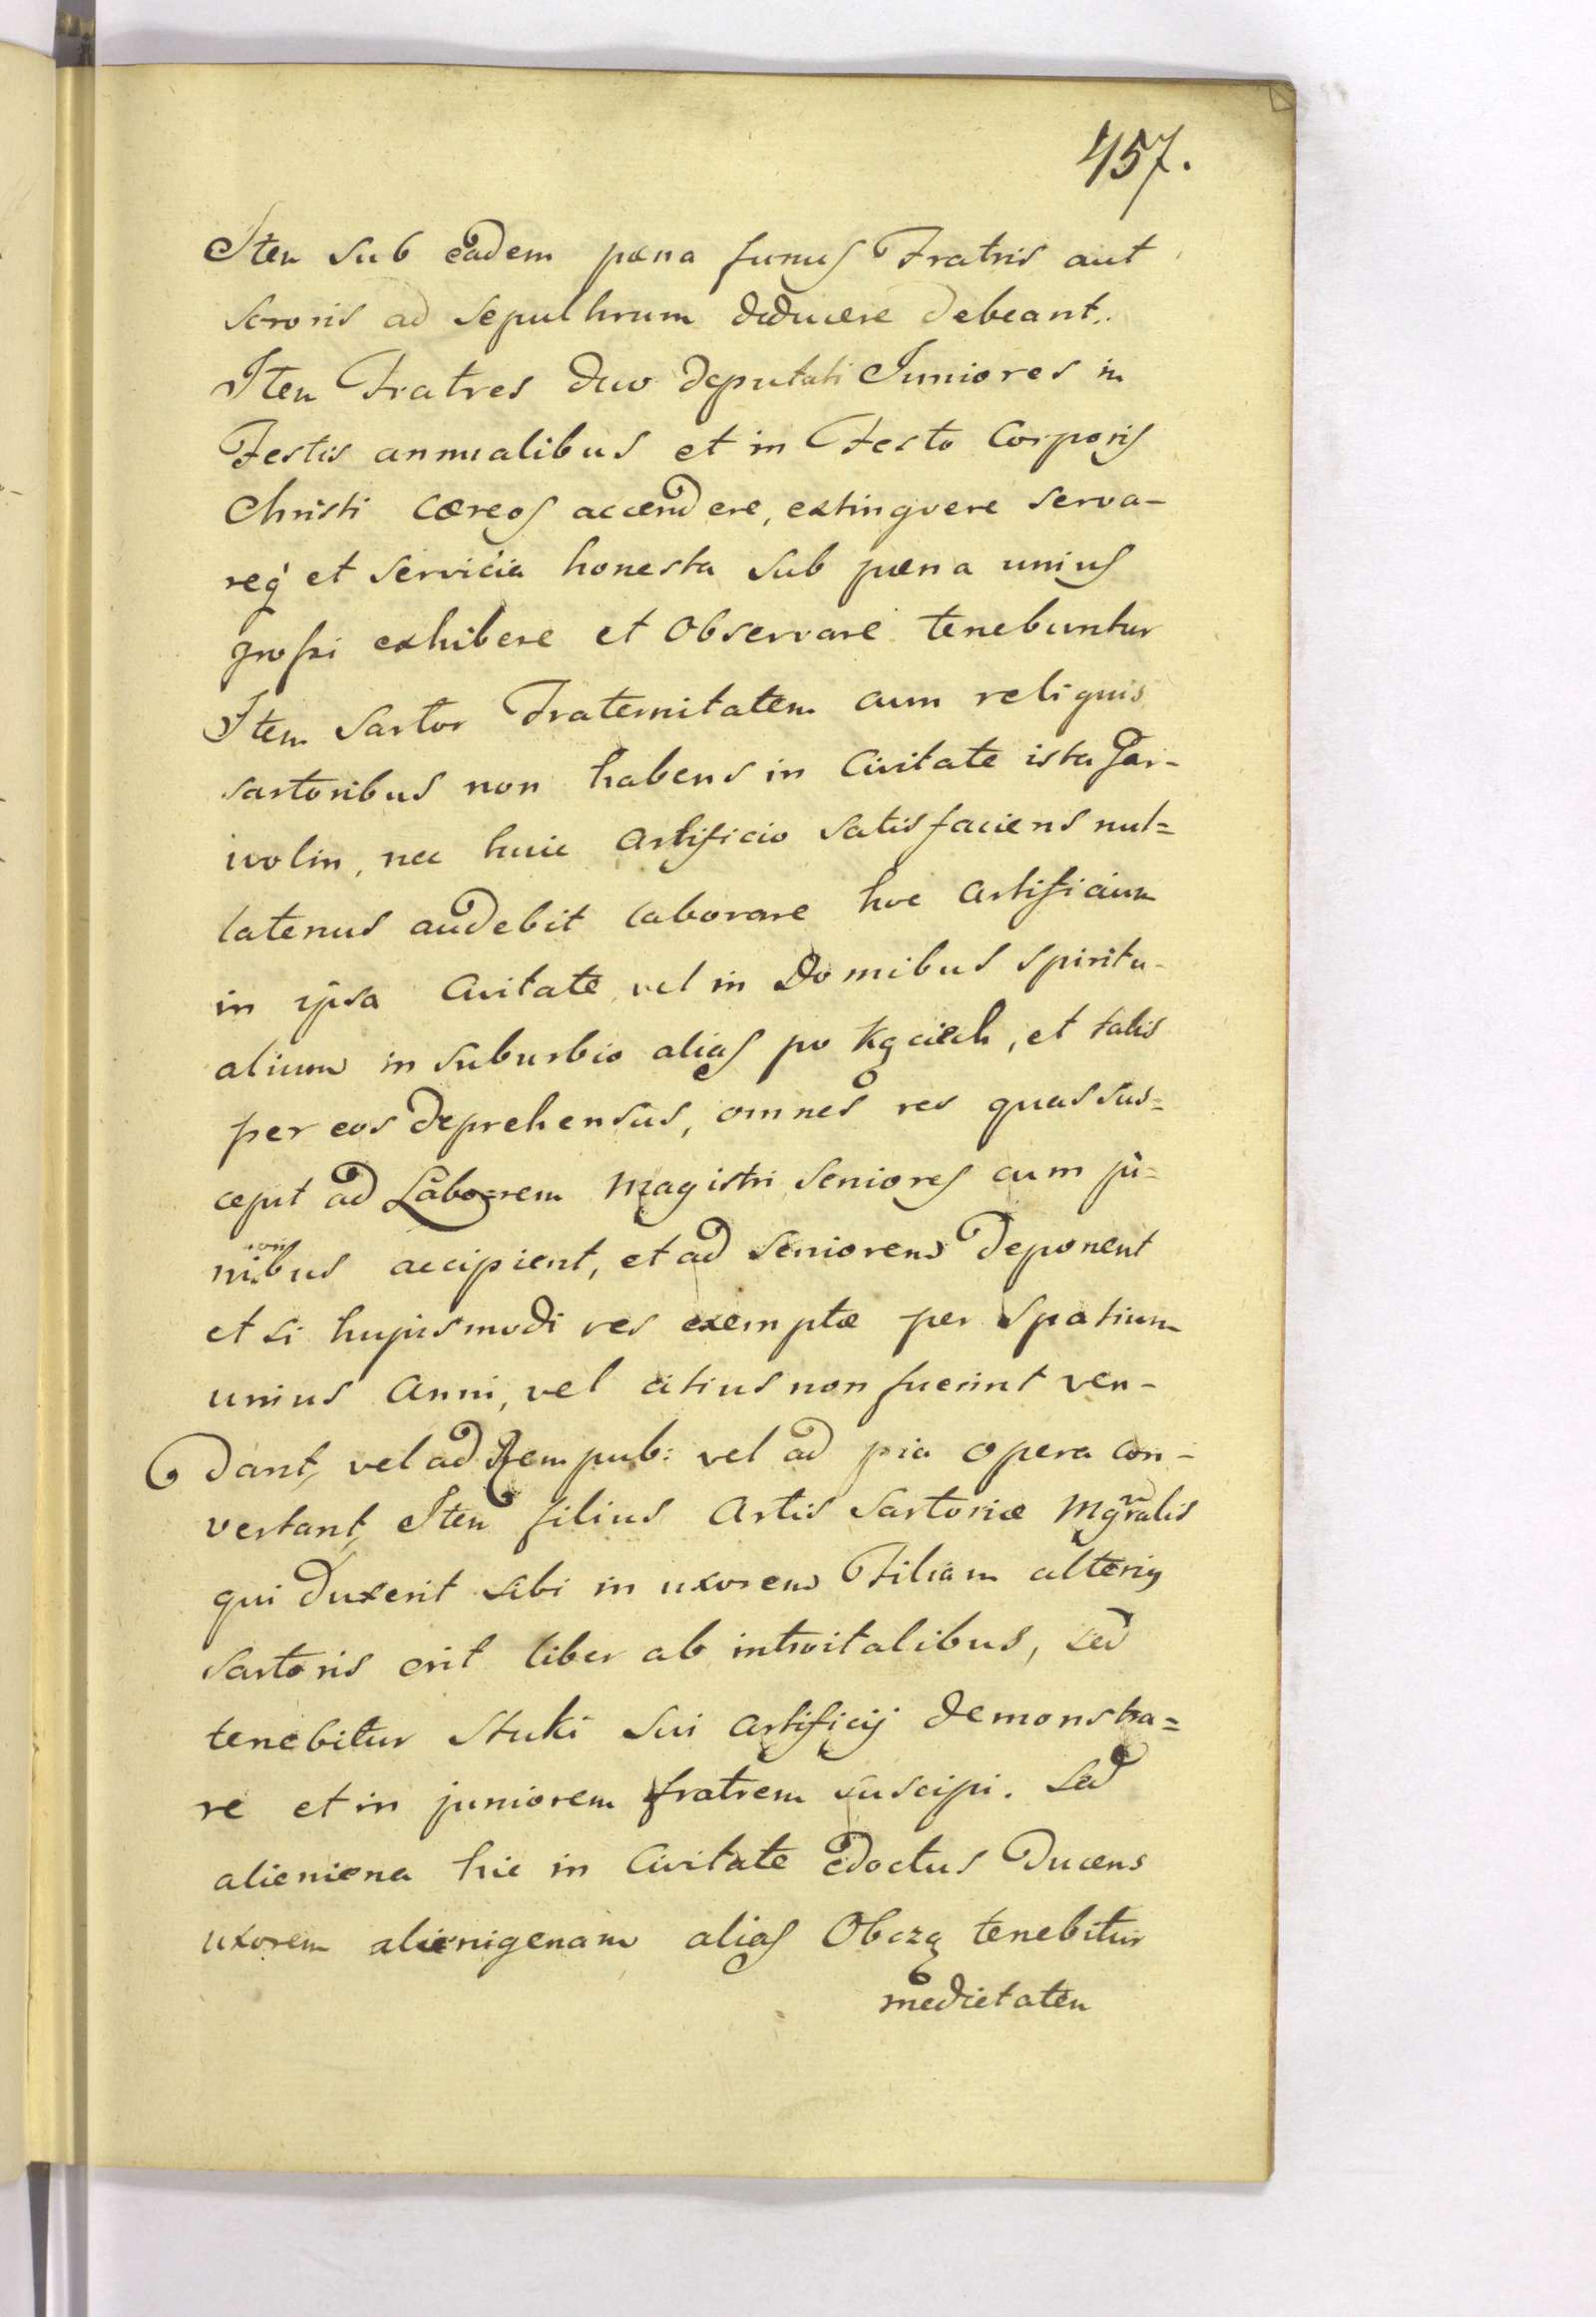 457.
Item sub eadem pæna funus Fratris aut
sororis ad sepulhrum deducere debeant.
Item Fratres duo deputati Juniores in
Festis annualibus et in Festo Corporis
Christi cæreos accendere, extingvere serva-
req et servicia honesta sub pæna unius
grossi exhibere et observare tenebuntur
Item Sartor Fraternitatem cum reliquis
sartoribus non habens in Civitate ista Gar-
wolin, nec huic artificio satisfaciens nul=
latenus audebit laborare hoc artificium
in ipsa Civitate, vel in Domibus spiritu-
alium in suburbio alias po Kącićch, et talis
per eos deprehensus, omnes res quas sus=
cepit ad Laborem Magistri seniores cum ju-
nioribus accipient, et ad seniorem deponent
et si hujusmodi res exemptæ per spatium
unius anni, vel citius non fuerint ven-
dant, vel ad Rempub: vel ad pia opera con-
vertant, Item filius Artis Sartoriæ Mgralis
qui duxerit sibi in uxorem Filiam alterius
sartoris erit liber ab introitalibus, sed
tenebitur Stuki sui artificij demonstra=
re et in juniorem fratrem suscipi. Sed
alieniena hic in Civitate edoctus ducens
uxorem alienigenam alias Obczą tenebitur
medietatem